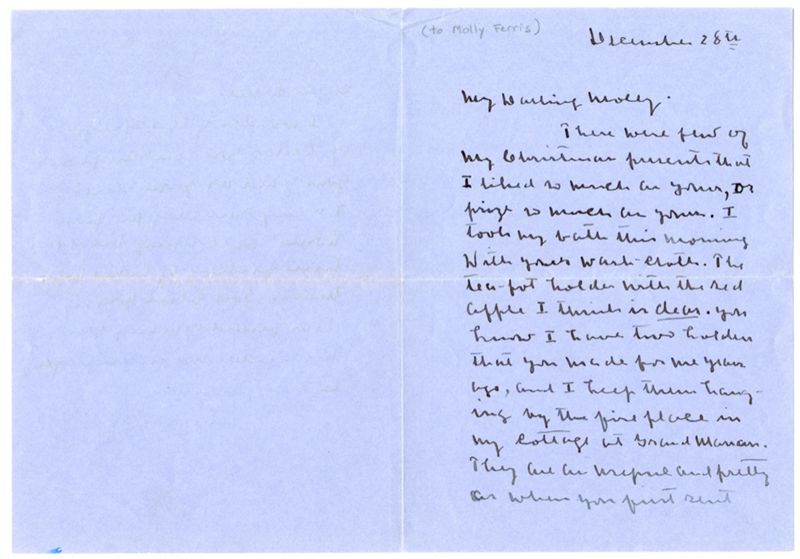 (to Molly Ferris)
December 28th
My Darling Molly.
There were few of
my Christmas presents that
I liked so much as yours, or
prize so much as yours. I
took my bath this morning
with your wash-cloth. The
tea-pot holder with the red
apple I think is dear. You
know I have two holders
that you made for me years
ago, and I keep them hang-
ing by the fire place in
my cottage at Grand Manan.
They are as useful and pretty
as when you first sent